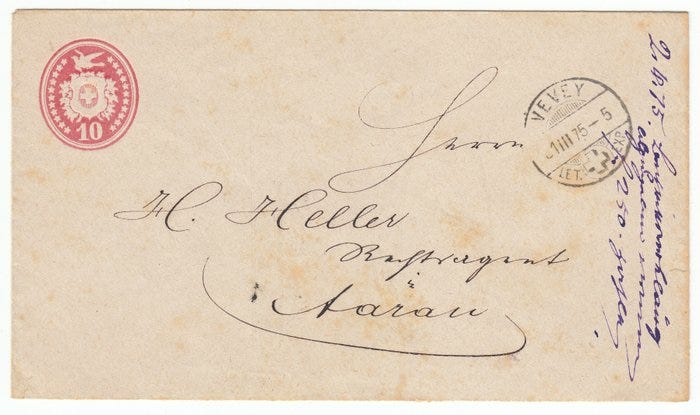 10
VEVEY
1 III 75 - 5
LET. EXP.
Herrn
H. Heller
Rechtsagent
Aarau
2. IV. 75.
250.